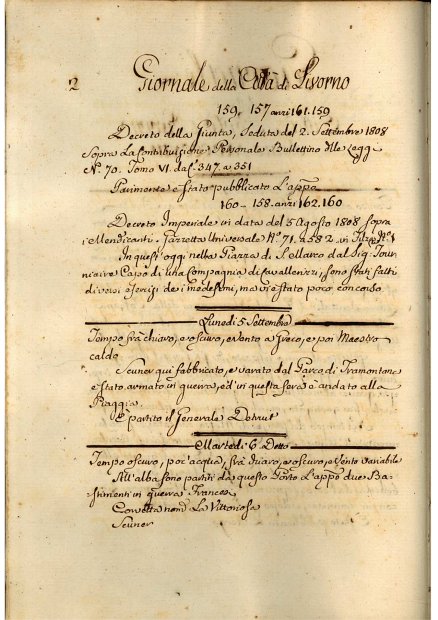 2 Giornale della Città di Livorno
159. 157 anzi 161.159
Decreto della Giunta, Seduta del 2. Settembre 1808
Sopra La Contribuzione Personale Bullettino delle Legg
N.º 70. Tomo VI. da c. 347. a 351
Parimente è stato pubblicato L'appo
160 — 158. anzi 162.160
Decreto Imperiale in data del 5 Agosto 1808 sopra
i Mendicanti. Gazzetta Universale N.º 71. a 582. in
In quest'oggi nella Piazza di S. Marco dal Sig.
Capo di una Compagnia di Cavallerizzi, sono stati fatti
diversi esercizi dei medesimi, ma vi è stato poco concorso
Lunedi 5 Settembre
Tempo frà chiaro, e oscuro, e vento a Greco, e poi Maestro
caldo
Seuner quì fabbricato, e varato dal Parco di Tramontana
è stato armato in guerra, ed in questa sera è andato alla
Piaggia
È partito il Generale Detruit
Martedi 6. Detto
Tempo oscuro, poc'acqua, frà chiaro, e oscuro, e vento variabile
All'alba sono partiti da questo Porto L'appo due Ba-
stimenti in guerra Francesi
Corvetta nom.ª La Vittoriosa
Seuner